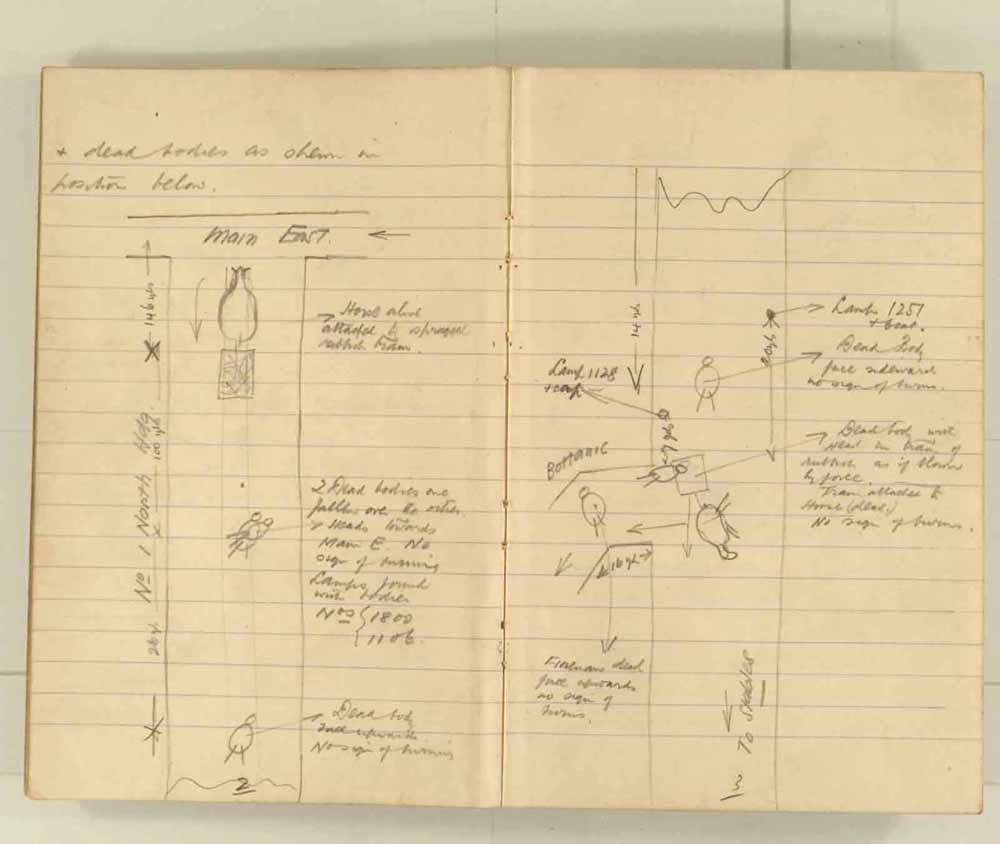 + dead bodies as shewn in
position below.
Main East.
14 yds
Horse alive
attached to spragged
rubbish tram.
100 yds
No 1 North Hdg
2 Dead bodies one
fallen over the other.
Heads towards
Main E. No
sign of burning
Lamps found
with bodies
Nos { 1800
{ 1106.
26 y.
Dead body
face upwards.
No sign of burning
2
14 yds
Lamp 1251
+ coat.
20 yds
Dead Body
face sideward
no sign of burns.
Lamp 1128
+ cap
Dead body with
Head in tram of
rubbish as if blown
by force.
Tram attached to
Horse (dead.)
No sign of burns.
Bottanic
16 yds
Firemans dead
face upwards
no sign of
burns.
To Stables
3